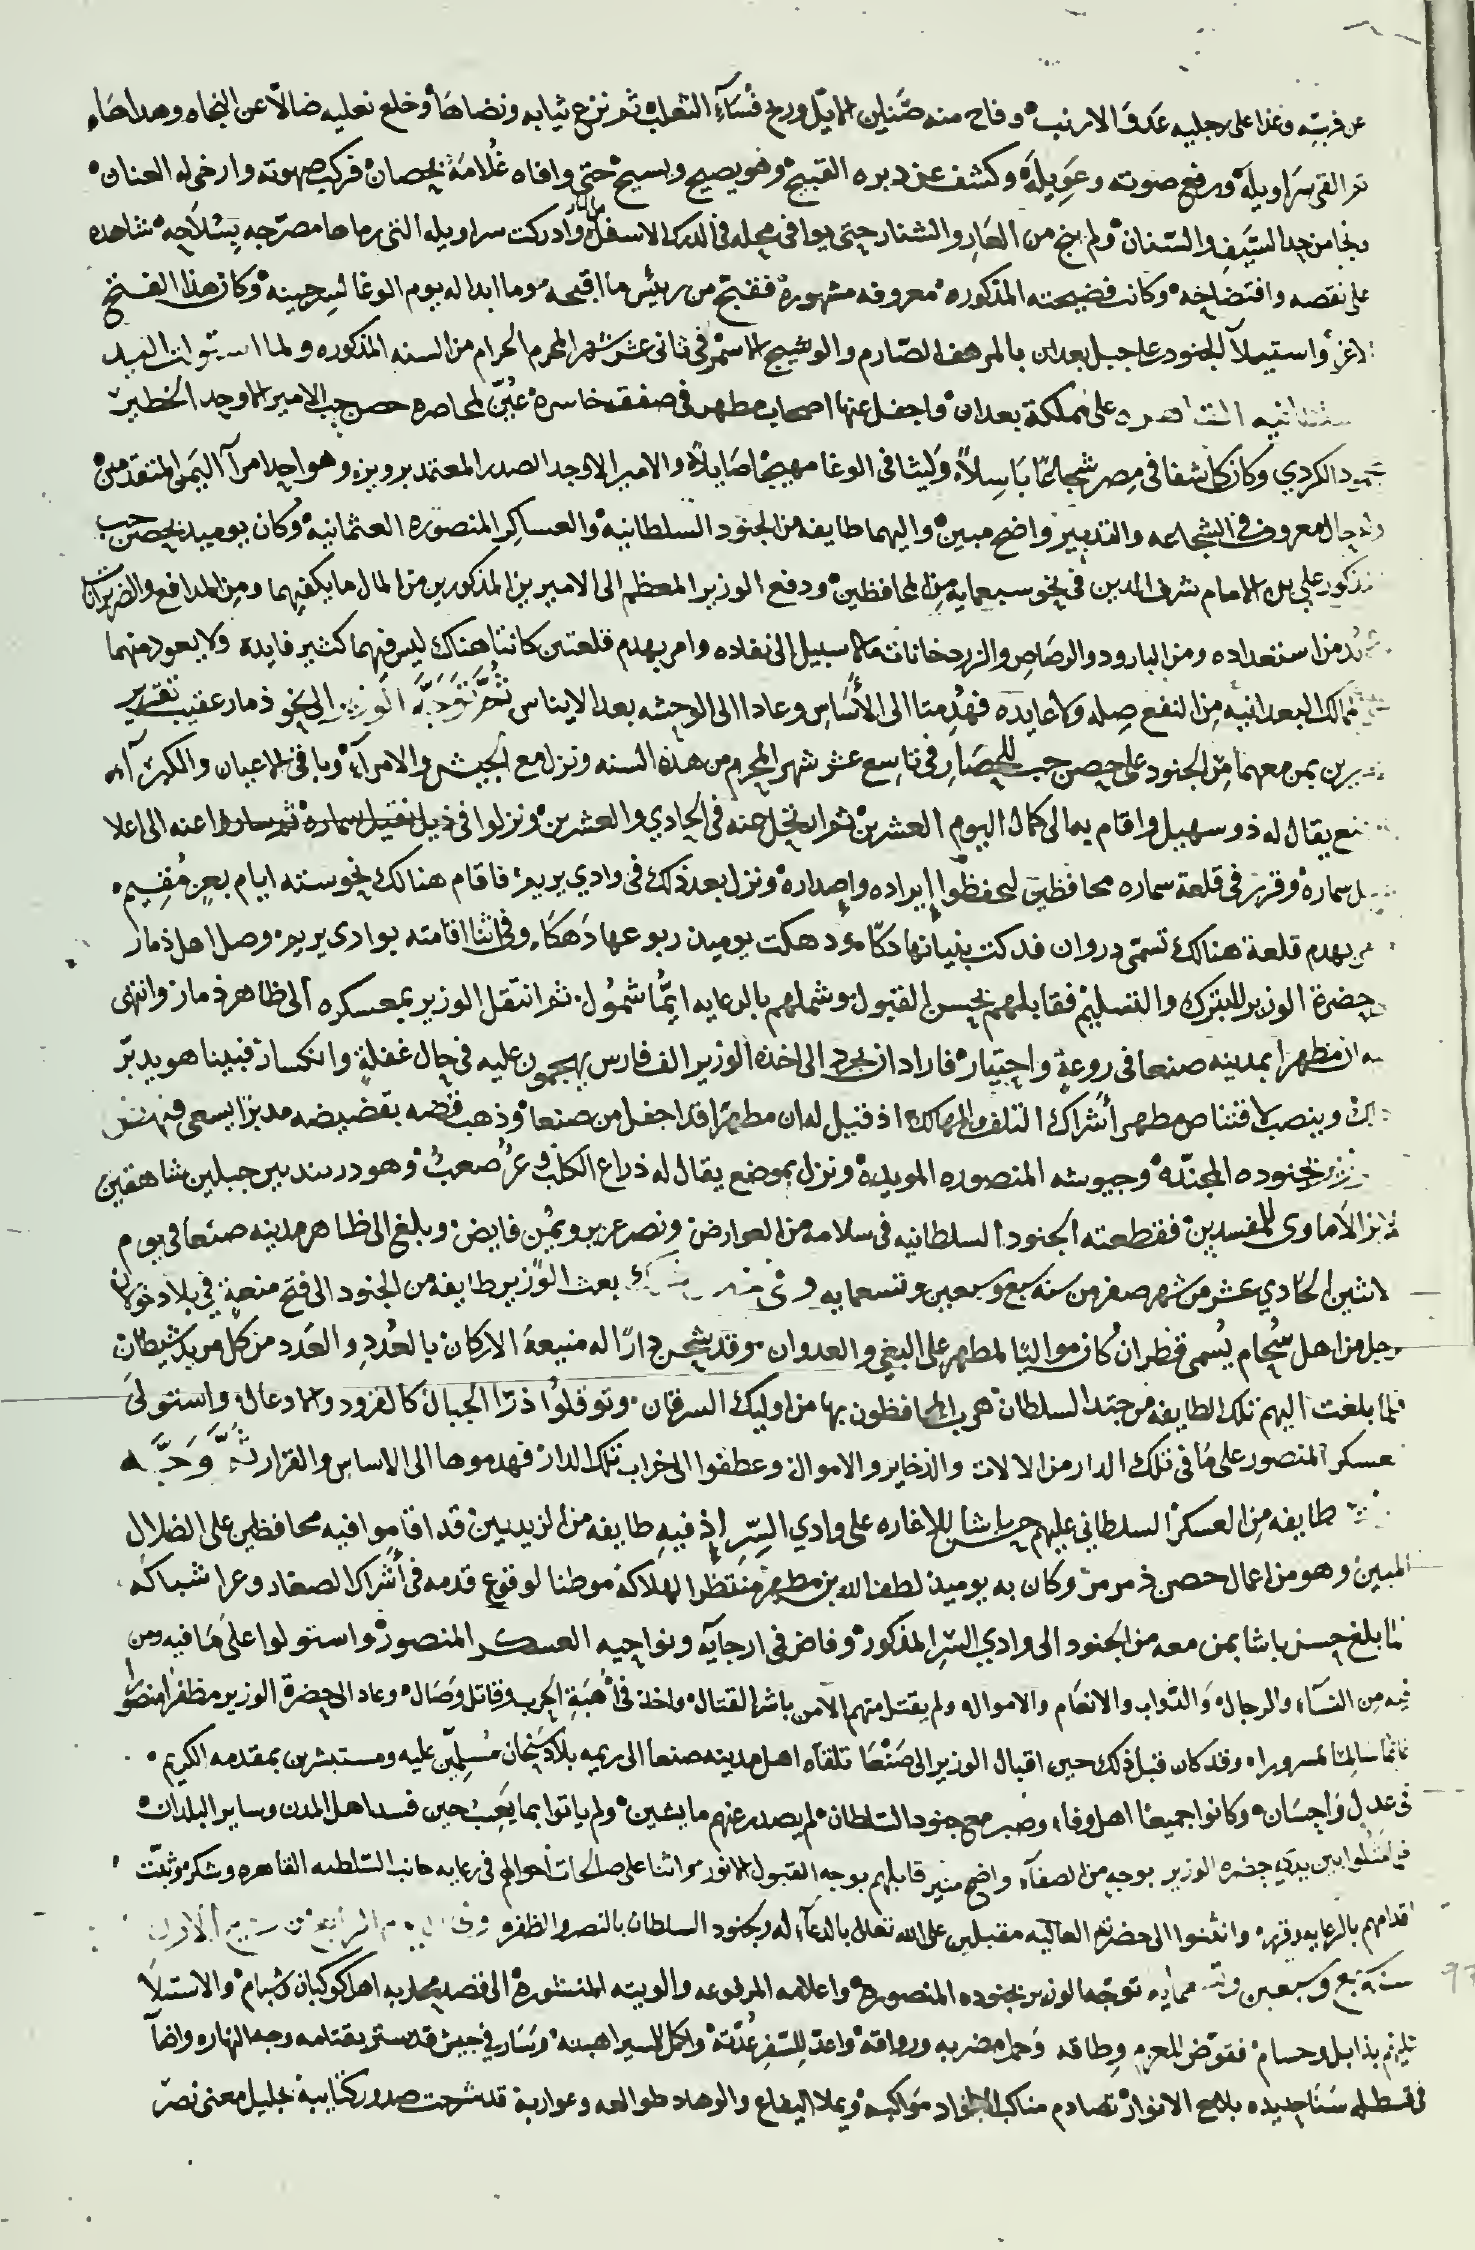 عن فرسه وغدا على رجليه عدو الارنب وفاح منه صنان الابل وريح فساء الثعلب ثم نزع ثيابه ونضاها وخلع نعليه ضالا عن النجاه وهداها
ثم القى سراويله ورفع صوته وعويله وكشف عن دبره القبيح وهو يصيح ويسيح حتى وافاه غلامه بحصان فركب صهوته وارخى له العنان
ونجا من حد السيف والسنان ولم ينج من العار والشنار حتى يوافى محله فى الدرك الاسفل من النار وادركت سراويله التى رماها مصرجه بسلاحه شاهده
على نقصه وافتضاحه وكانت فضيحته المذكوره معروفه مشهوره فقبح من رئيس ما اقبحه وما ابداله يوم الوغا لسرحينه وكان هذا الفتح
الاغر واستيلا الجنود على جبل بعدان بالمرهف الصارم والوشيج الاسمر فى ثانى عشر شهر المحرم الحرام من السنه المذكوره ولما استولت اليد
السلطانيه القاهره على مملكة بعدان واجفل عنها اصحاب مطهر فى صفقه خاسره عين لمحاصره حصن حب الامير الاوحد الخطير
محمود الكردي وكان كاشفا فى مصر شجاعا باسلا وليثا فى الوغا مهيجا صايلا والامير الاوحد الصدر المعتمد برويز وهو احد امرآ اليمن المتقدمين
وله حال معروف فى الشجاعه والتدبير واضح مبين واليهما طايفه من الجنود السلطانيه والعساكر المنصوره العثمانيه وكان يوميذ بحصن حب
المذكور على بن الامام شرف الدين فى نحو سبعمايه من المحافظين ودفع الوزير المعظم الى الاميرين المذكورين من المال ما يكفيهما ومن المدافع والضربزانات
من استعداده ومن البارود والرصاص والزردخانات ما لا سبيل الى نفاده وامر بهدم قلعتين كانتا هناك ليس فيهما كثير فايدة ولا يعود منهما
على الممالك البعدانيه من النفع صله ولا عايده فهدمتا الى الأساس وعادا الى الوحشه بعد الايناس ثم توجه الوزير الى نحو ذمار عقيب تقرير
الاميرين بمن معهما من الجنود على حصن حب للحصار فى تاسع عشر شهر المحرم من هذه السنه ونزل مع الجيش والامرآء وباقى الاعيان والكبرآء
بموضع يقال له ذو سهيل واقام بها الى كمال اليوم العشرين ثم ارتحل عنه فى الحادي والعشرين ونزلوا فى ذيل نقيل سماره ثم ساروا عنه الى اعلا
نقيل سماره وقرر فى قلعة سماره محافظين ليحفظوا ايراده واصداره ونزل بعد ذلك فى وادي يريم فاقام هنالك نحو سته ايام بعز مقيم
وامر بهدم قلعة هنالك تسمى دروان فدكت بنيانها دكا ودهكت يوميذ ربوعها دهكا وفى اثنا اقامته بوادى يريم وصل اهل ذمار
الى حضرة الوزير للتبرك والتسليم فقابلهم بحسن القبول وشملهم بالرعايه ايما شمول ثم انتقل الوزير بمعسكره الى ظاهر ذمار وانتهى
اليه ان مطهرا بمدينه صنعا فى روعة واحتيار فاراد ان يجرد الى اخذه الوزير الف فارس يهجمون عليه فى حال غفلة وانكسار فبينا هو يدبر
ذلك وينصب لاقتناص مطهر أشراك التلف والمهالك اذ قيل له ان مطهرا قد اجفل من صنعا وذهب قضه بقضيضه مدبرا يسعى فنهض
الوزير بجنوده المجنده وجيوشه المنصوره المويده ونزل بموضع يقال له ذراع الكلب وعر صعب وهو دربند بين جبلين شاهقين
الا ماوى للمفسدين فقطعته الجنود السلطانيه فى سلامه من العوارض ونصر عزيز ويمن فايض وبلغ الى ظاهر مدينه صنعا فى يوم
الاثنين الحادي عشر من شهر صفر من سنه سبع وسبعين وتسعمايه وفى بعث الوزير طايفه من الجنود الى فتح منعة فى بلاد خولان
لرجل من اهل سحام يسمى قطران كان مواليا لمطهر على البغى والعدوان وقد شحن دارا له منيعة الاركان بالعدد والعدد من كل مريد شيطان
فلما بلغت اليهم تلك الطايفه من جند السلطان هرب المحافظون بها من اوليك السرقان وتوقلوا ذرا الجبال كالقرود والاوعال واستولى
العسكر المنصور على ما فى تلك الدار من الالات والذخاير والاموال وعطفوا الى خراب تلك الدار فهدموها الى الاساس والقرار ثم وجه
طايفه من العسكر السلطانى عليهم حسن باشا للاغاره على وادي السر اذ فيه طايفه من الزيديين قد اقاموا فيه محافظين على الضلال
المبين وهو من اعمال حصن ذمرمر وكان به يوميذ لطف الله بن مطهر منتظرا لهلاكه موطنا لوقوع قدمه فى أشراك الصغاد وعرا شباكه
فلما بلغ حسن باشا بمن معه من الجنود الى وادي السر المذكور وفاض فى ارجآيه ونواحيه العسكر المنصور واستولوا على ما فيه ومن
فيه من النسآء والرجال والدواب والانعام والاموال ولم يقتل منهم الا من باشر القتال واخذ فى أهبة الحرب وقاتل وصال وعاد الى حضرة الوزير مظفرا منصورا
غانما سالما مسرورا وقد كان قبل ذلك حين اقبال الوزير الى صنعا تلقاه اهل مدينه صنعا الى ريمه بلاد سنحان مسلمين عليه ومستبشرين بمقدمه الكريم
فى عدل واحسان وكانوا جميعا اهل وفاء وصبر مع جنود السلطان لم يصدر عنهم ما يشين ولم ياتوا بما يعب حين فسد اهل المدن وساير البلدان
فمثلوا بين يدي حضره الوزير بوجه من الصفآء واضح منير قابلهم بوجه القبول الانور واثنا على صالحات احوالهم فى رعايه جانب السلطنه القاهره وشكر وثبت
اقدامهم بالرعايه وقررها وانثنوا الى حضرتهم العاليه مقبلين على الله تعالى بالدعآء له ولجنود السلطان بالنصر والظفر وفى الرابع من ربيع الاول
سنة سبع وسبعين وتسعمايه توجه الوزير بجنوده المنصوره واعلامه المرفوعه والويته المنشوره الى قصد محاربه اهل كوكبان وشبام والاستيلآ
عليهم بذابل وحسام فقوض المخيم وطاقه وحمل مضربه ورواقه واعد للسفر عدته واكمل للسير اهبته وسار فى جيش قد ستر بقتامه وجه النهار واضآ
فى قسطله سنا حديده بلامع الانوار تصادم مناكب الاطواد مواكبه ويملا اليفاع والوهاد طوالعه وغواربه قد شرحت صدور كتايبه بجليل معنى نصر